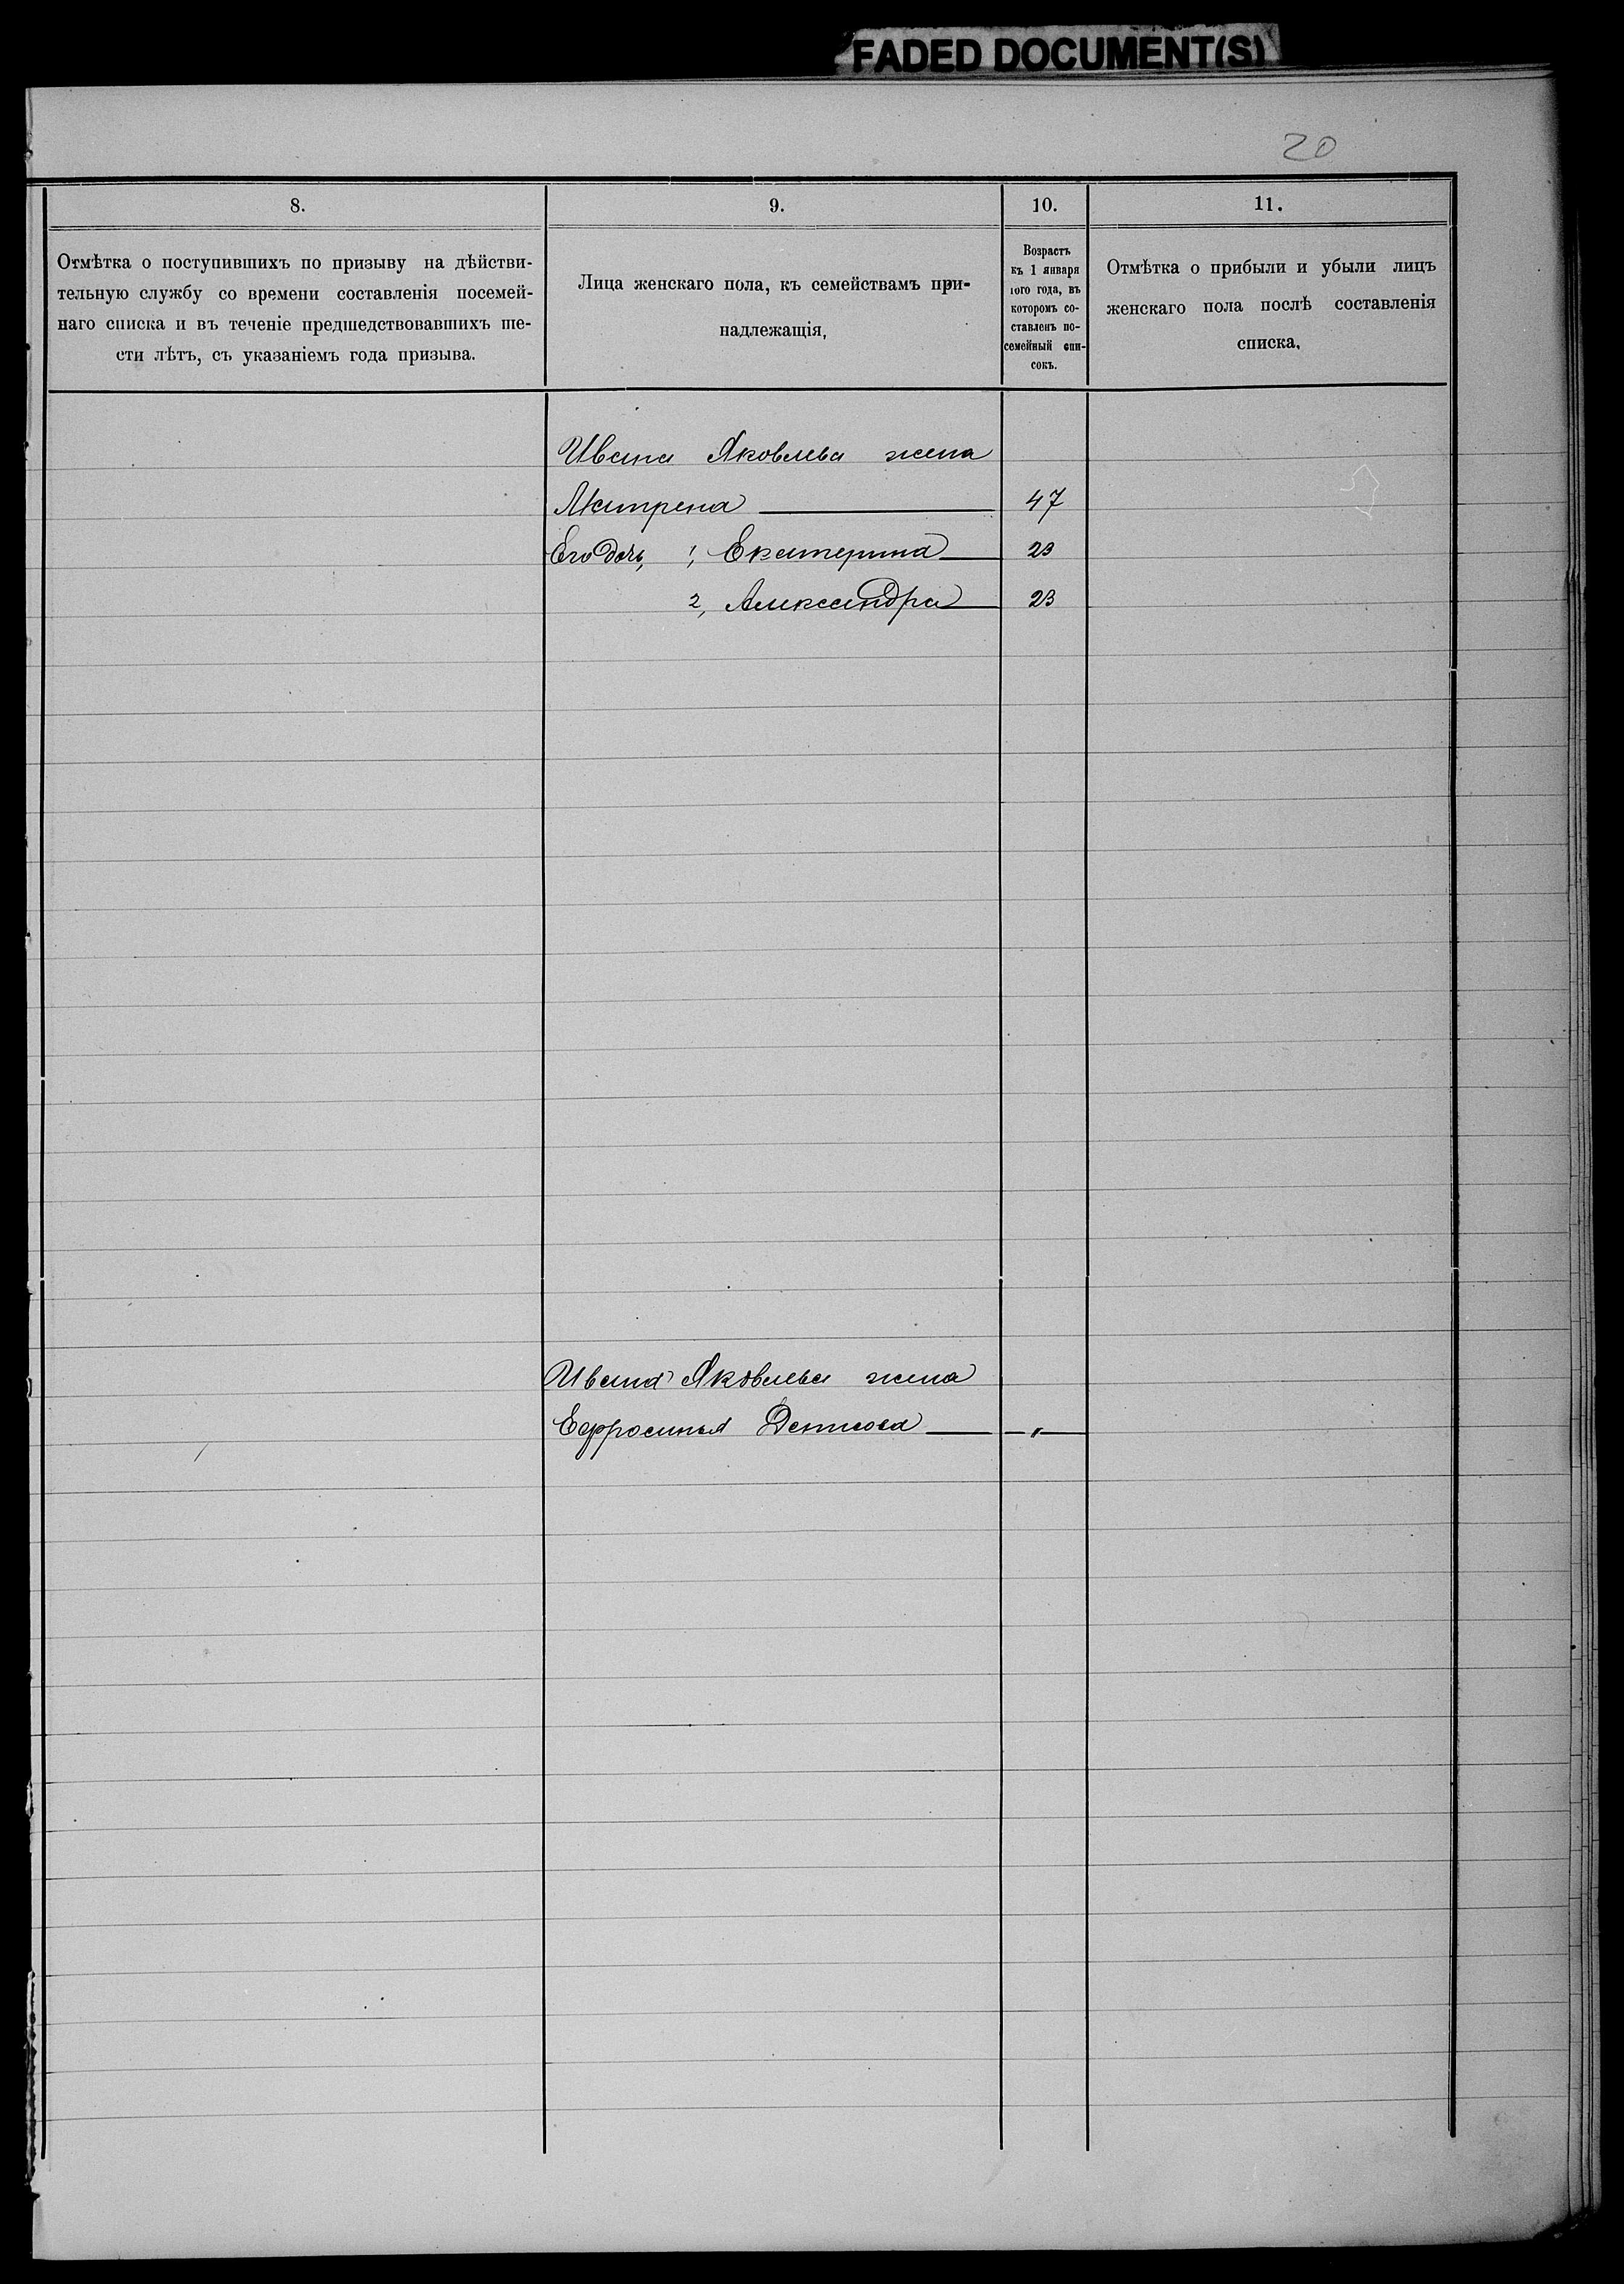 FADED DOCUMENT(S)
20
8.
Отмѣтка о поступившихъ по призыву на дѣйстви-
тельную службу со времени составленія посемей-
наго списка и въ теченіе предшедствовавшихъ ше-
сти лѣтъ, съ указаніемъ года призыва.
9.
Лица женскаго пола, къ семействамъ при-
надлежащія,
10.
Возрастъ
къ 1 января
того года, въ
которомъ со-
ставленъ по-
семейный спи-
сокъ.
11.
Отмѣтка о прибыли и убыли лицъ
женскаго пола послѣ составленія
списка,
Ивана Яковлева жена
Матрена 47
Его дочь, 1, Екатерина 23
2, Александра 23
Ивана Яковлева жена
Ефросинья Денисова — „ —